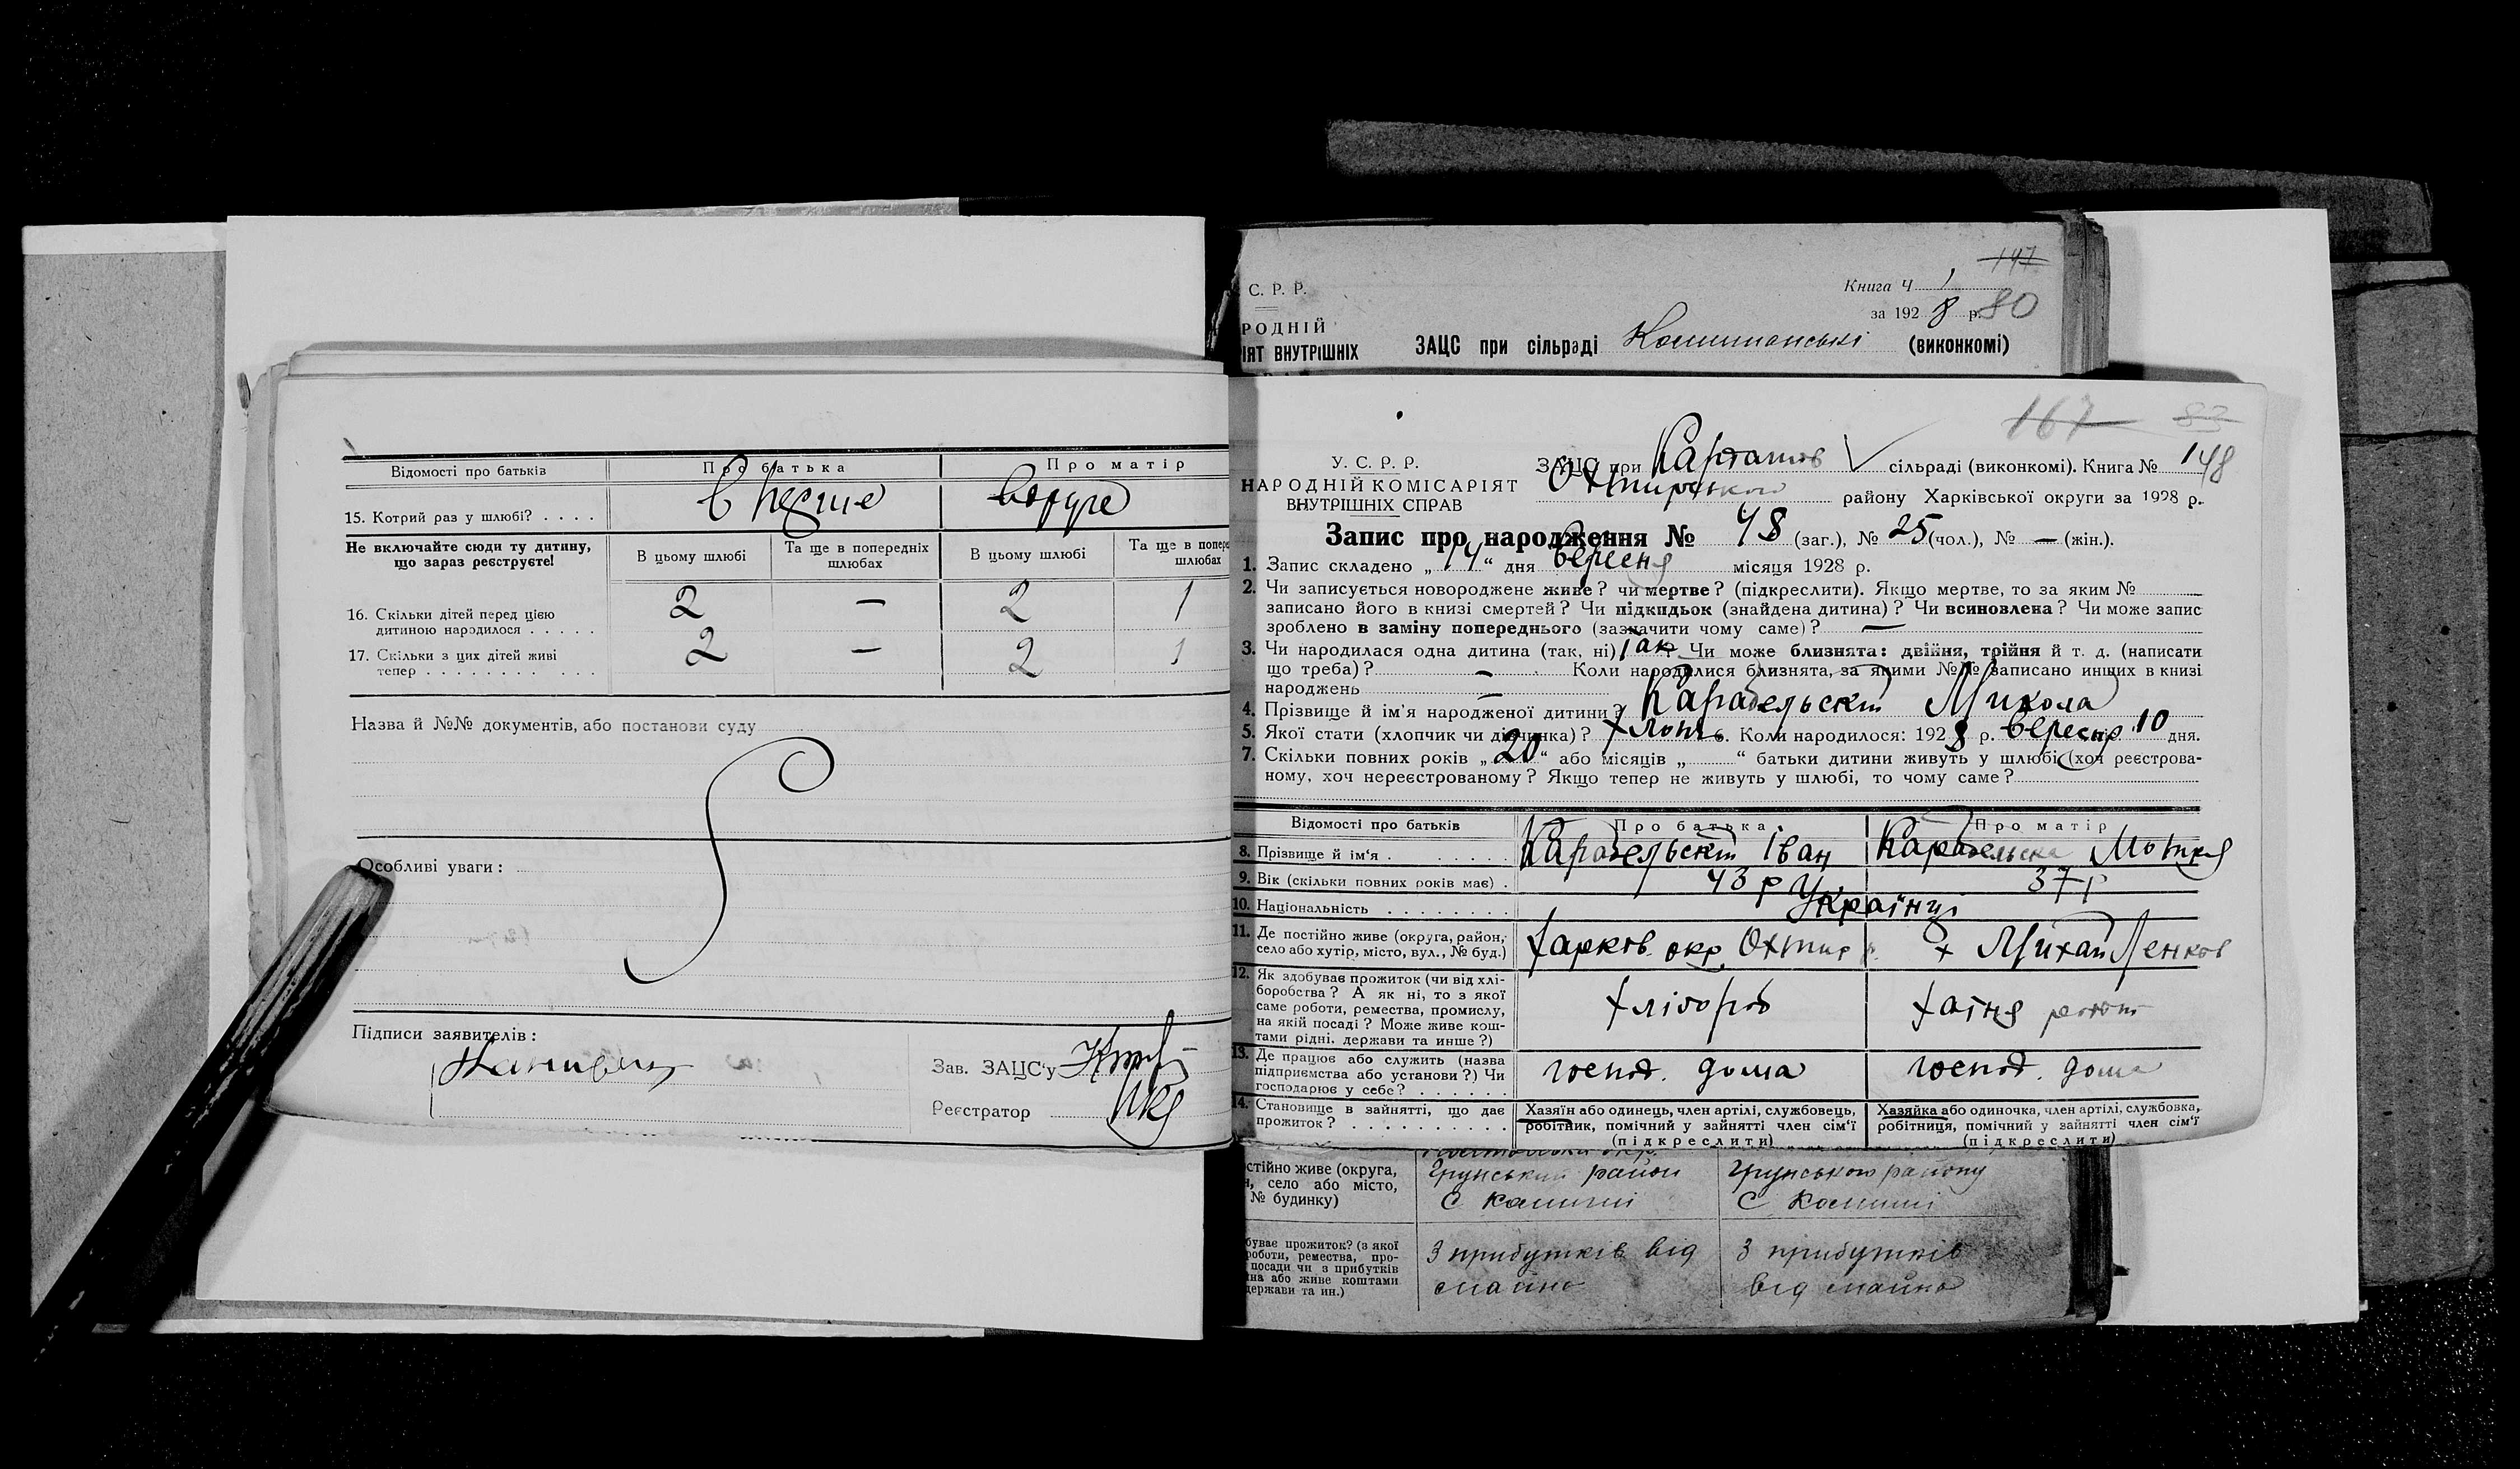 Відомості про батьків Про батька Про матір
15. Котрий раз у шлюбі? . . . . в перше вдруге
Не включайте сюди ту дитину, що зараз реєструєте!
В цьому шлюбі Та ще в попередніх шлюбах В цьому шлюбі Та ще в попере шлюбах
16. Скільки дітей перед цією
дитиною народилося . . . . . 2 — 2 1
17. Скільки з цих дітей живі
тепер . . . . . . . . . . . 2 — 2 1
Назва й №№ документів, або постанови суду
Особливі уваги:
Підписи заявителів:
Зав. ЗАЦС'у
Реєстратор
147
С. Р. Р. Книга Ч 1
за 1928 р. 80
РОДНІЙ
ІЯТ ВНУТРІШНІХ ЗАЦС при сільраді (виконкомі)
167 83
У. С. Р. Р. ЗАЦС при сільраді (виконкомі). Книга № 148
НАРОДНІЙ КОМІСАРІЯТ
ВНУТРІШНІХ СПРАВ Охтирського району Харківської округи за 1928 р.
Запис про народження № 48 (заг.), № 25 (чол.), № — (жін.).
1. Запис складено „14“ дня вересня місяця 1928 р.
2. Чи записується новороджене живе? чи мертве? (підкреслити). Якщо мертве, то за яким №
записано його в книзі смертей? Чи підкидьок (знайдена дитина)? Чи всиновлена? Чи може запис
зроблено в заміну попереднього (зазначити чому саме)? —
3. Чи народилася одна дитина (так, ні) так? Чи може близнята: двійня, трійня й т. д. (написати
що треба)? — Коли народилися близнята, за якими №№ записано инших в книзі
народжень —
4. Прізвище й ім'я народженої дитини? Микола
5. Якої стати (хлопчик чи дівчинка)? хлопч. Коли народилося: 1928 р. вересня 10 дня.
7. Скільки повних років „20“ або місяців „ “ батьки дитини живуть у шлюбі (хоч реєстрова-
ному, хоч нереєстрованому? Якщо тепер не живуть у шлюбі, то чому саме?
Відомості про батьків Про батька Про матір
8. Прізвище й ім'я . . . . . . Іван Мотря
9. Вік (скільки повних років має) . 43 р 37 р
10. Національність . . . . . . . . Українці
11. Де постійно живе (округа, район,
село або хутір, місто, вул., № буд.) Харків. окр. Охтир р. х Михайленков
12. Як здобуває прожиток (чи від хлі-
боробства? А як ні, то з якої
саме роботи, ремества, промислу,
на якій посаді? Може живе кош-
тами рідні, держави та инше?) хлібороб хатня
13. Де працює або служить (назва
підприємства або установи?) Чи
господарює у себе? . . . . . . госпд. дома госпд. дома
14. Становище в зайнятті, що дає
прожиток? . . . . . . . . . .
Хазяїн або одинець, член артілі, службовець,
робітник, помічний у зайнятті член сім'ї
(підкреслити)
Хазяйка або одиночка, член артілі, службовка,
робітниця, помічний у зайнятті член сім'ї
(підкреслити)
стійно живе (округа,
н, село або місто,
№ будинку)
Грунський район
Грунського району
буває прожиток? (з якої
роботи, ремества, про-
посади чи з прибутків
на або живе коштами
держави та ин.)
З прибутків від
майна
З прибутків
від майна